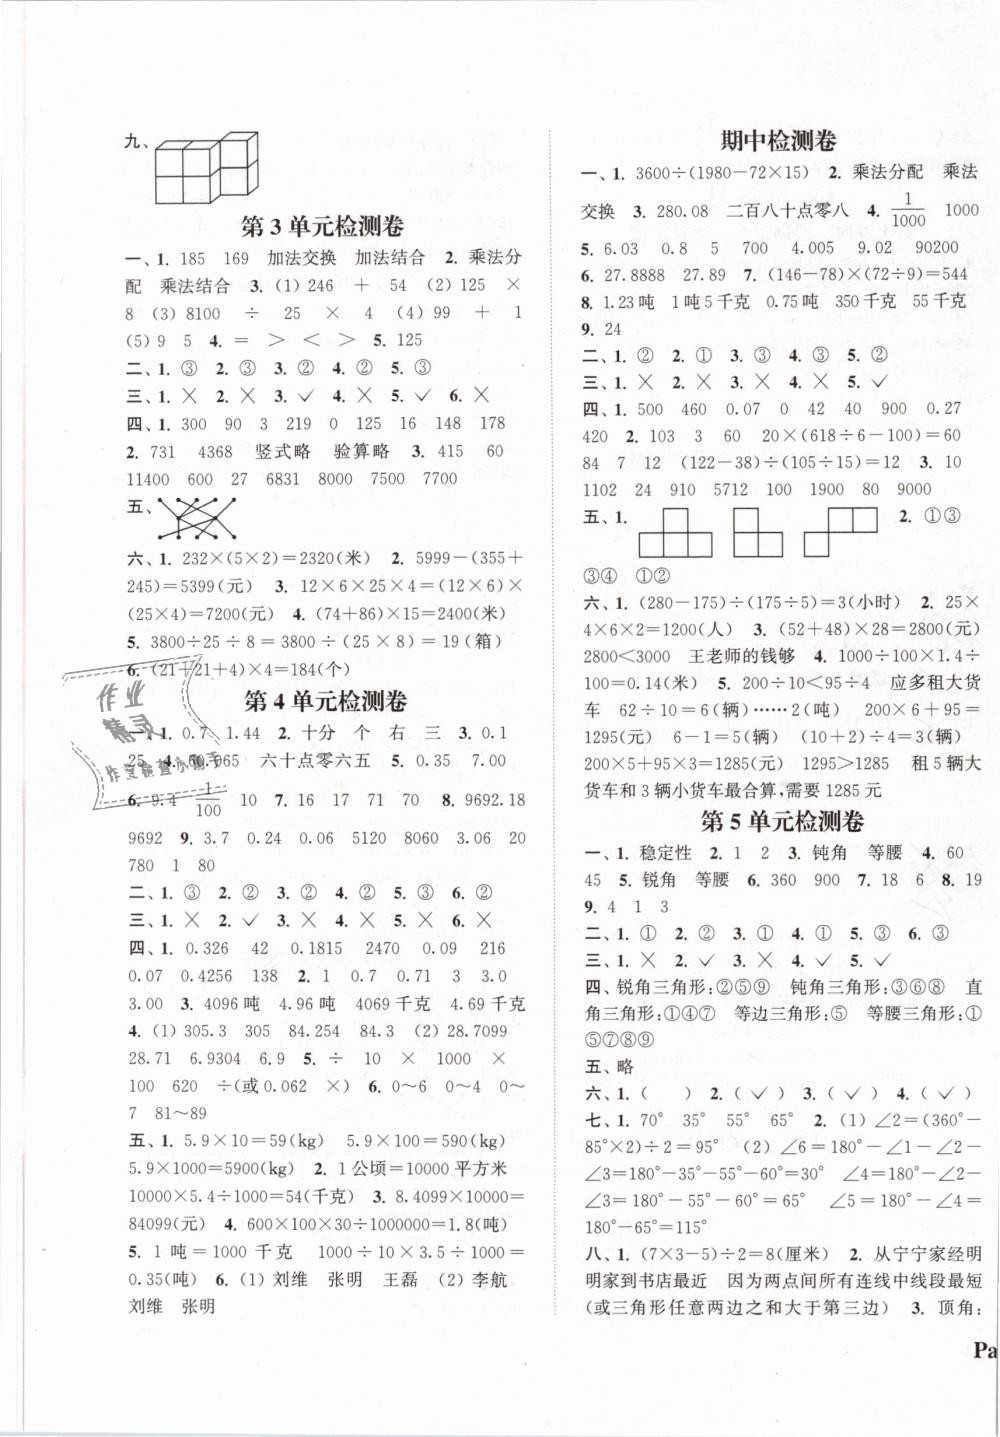 九、
第 3 单元检测卷
一、1. 185 169 加法交换 加法结合 2. 乘法分
配 乘法结合 3. (1) 246 + 54 (2) 125 ×
8 (3) 8100 ÷ 25 × 4 (4) 99 + 1
(5) 9 5 4. = > < > 5. 125
二、1. ③ 2. ③ 3. ② 4. ② 5. ③
三、1. × 2. × 3. ✓ 4. × 5. ✓ 6. ×
四、1. 300 90 3 219 0 125 16 148 178
2. 731 4368 竖式略 验算略 3. 415 60
11400 600 27 6831 8000 7500 7700
五、
六、1. 232×(5×2)=2320(米) 2. 5999-(355+
245)=5399(元) 3. 12×6×25×4=(12×6)×
(25×4)=7200(元) 4. (74+86)×15=2400(米)
5. 3800÷25÷8=3800÷(25×8)=19(箱)
6. (21+21+4)×4=184(个)
第 4 单元检测卷
一、1. 0.7 1.44 2. 十分 个 右 三 3. 0.1
25 4. 60.065 六十点零六五 5. 0.35 7.00
6. 9.4 1/100 10 7. 16 17 71 70 8. 9692.18
9692 9. 3.7 0.24 0.06 5120 8060 3.06 20
780 1 80
二、1. ③ 2. ② 3. ② 4. ② 5. ③ 6. ②
三、1. × 2. ✓ 3. × 4. × 5. × 6. ×
四、1. 0.326 42 0.1815 2470 0.09 216
0.07 0.4256 138 2. 1 0.7 0.71 3 3.0
3.00 3. 4096 吨 4.96 吨 4069 千克 4.69 千克
4. (1) 305.3 305 84.254 84.3 (2) 28.7099
28.71 6.9304 6.9 5. ÷ 10 × 1000 ×
100 620 ÷(或 0.062 ×) 6. 0～6 0～4 0～
7 81～89
五、1. 5.9×10=59(kg) 5.9×100=590(kg)
5.9×1000=5900(kg) 2. 1 公顷=10000 平方米
10000×5.4÷1000=54(千克) 3. 8.4099×10000=
84099(元) 4. 600×100×30÷1000000=1.8(吨)
5. 1 吨=1000 千克 1000÷10×3.5÷1000=
0.35(吨) 6. (1) 刘维 张明 王磊 (2) 李航
刘维 张明
期中检测卷
一、1. 3600÷(1980-72×15) 2. 乘法分配 乘法
交换 3. 280.08 二百八十点零八 4. 1/1000 1000
5. 6.03 0.8 5 700 4.005 9.02 90200
6. 27.8888 27.89 7. (146-78)×(72÷9)=544
8. 1.23 吨 1 吨 5 千克 0.75 吨 350 千克 55 千克
9. 24
二、1. ② 2. ① 3. ③ 4. ③ 5. ②
三、1. × 2. × 3. × 4. × 5. ✓
四、1. 500 460 0.07 0 42 40 900 0.27
420 2. 103 3 60 20×(618÷6-100)=60
84 7 12 (122-38)÷(105÷15)=12 3. 10
1102 24 910 5712 100 1900 80 9000
五、1. 2. ①③
③④ ①②
六、1. (280-175)÷(175÷5)=3(小时) 2. 25×
4×6×2=1200(人) 3. (52+48)×28=2800(元)
2800<3000 王老师的钱够 4. 1000÷100×1.4÷
100=0.14(米) 5. 200÷10<95÷4 应多租大货
车 62÷10=6(辆)……2(吨) 200×6+95=
1295(元) 6-1=5(辆) (10+2)÷4=3(辆)
200×5+95×3=1285(元) 1295>1285 租 5 辆大
货车和 3 辆小货车最合算,需要 1285 元
第 5 单元检测卷
一、1. 稳定性 2. 1 2 3. 钝角 等腰 4. 60
45 5. 锐角 等腰 6. 360 900 7. 18 6 8. 19
9. 4 1 3
二、1. ① 2. ② 3. ① 4. ① 5. ③ 6. ③
三、1. × 2. ✓ 3. × 4. ✓ 5. ✓
四、锐角三角形:②⑤⑨ 钝角三角形:③⑥⑧ 直
角三角形:①④⑦ 等边三角形:⑤ 等腰三角形:①
⑤⑦⑧⑨
五、略
六、1. ( ) 2. (✓) 3. (✓) 4. (✓)
七、1. 70° 35° 55° 65° 2. (1) ∠2=(360°-
85°×2)÷2=95° (2) ∠6=180°-∠1-∠2-
∠3=180°-35°-55°-60°=30° ∠4=180°-∠2-
∠3=180°-55°-60°=65° ∠5=180°-∠4=
180°-65°=115°
八、1. (7×3-5)÷2=8(厘米) 2. 从宁宁家经明
明家到书店最近 因为两点间所有连线中线段最短
(或三角形任意两边之和大于第三边) 3. 顶角:
Pa
作业
精灵
作业检查小助手